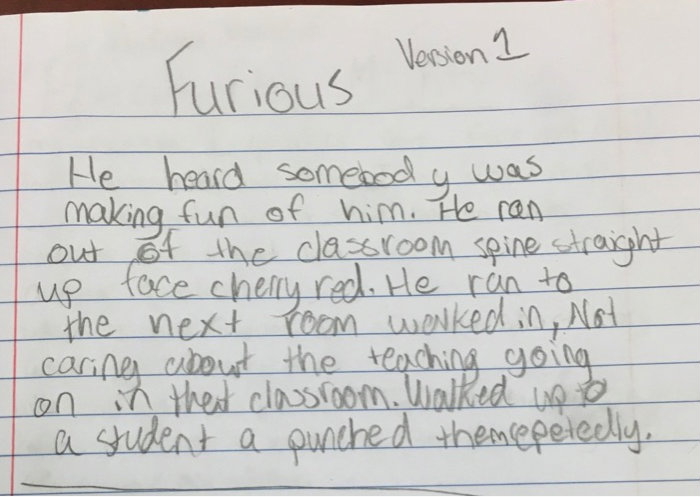 Furious Version 1
He heard somebody was
making fun of him. He ran
out of the classroom spine straight
up face cherry red. He ran to
the next room walked in, Not
caring about the teaching going
on in that classroom. Walked up to
a student a punched them repetedly.